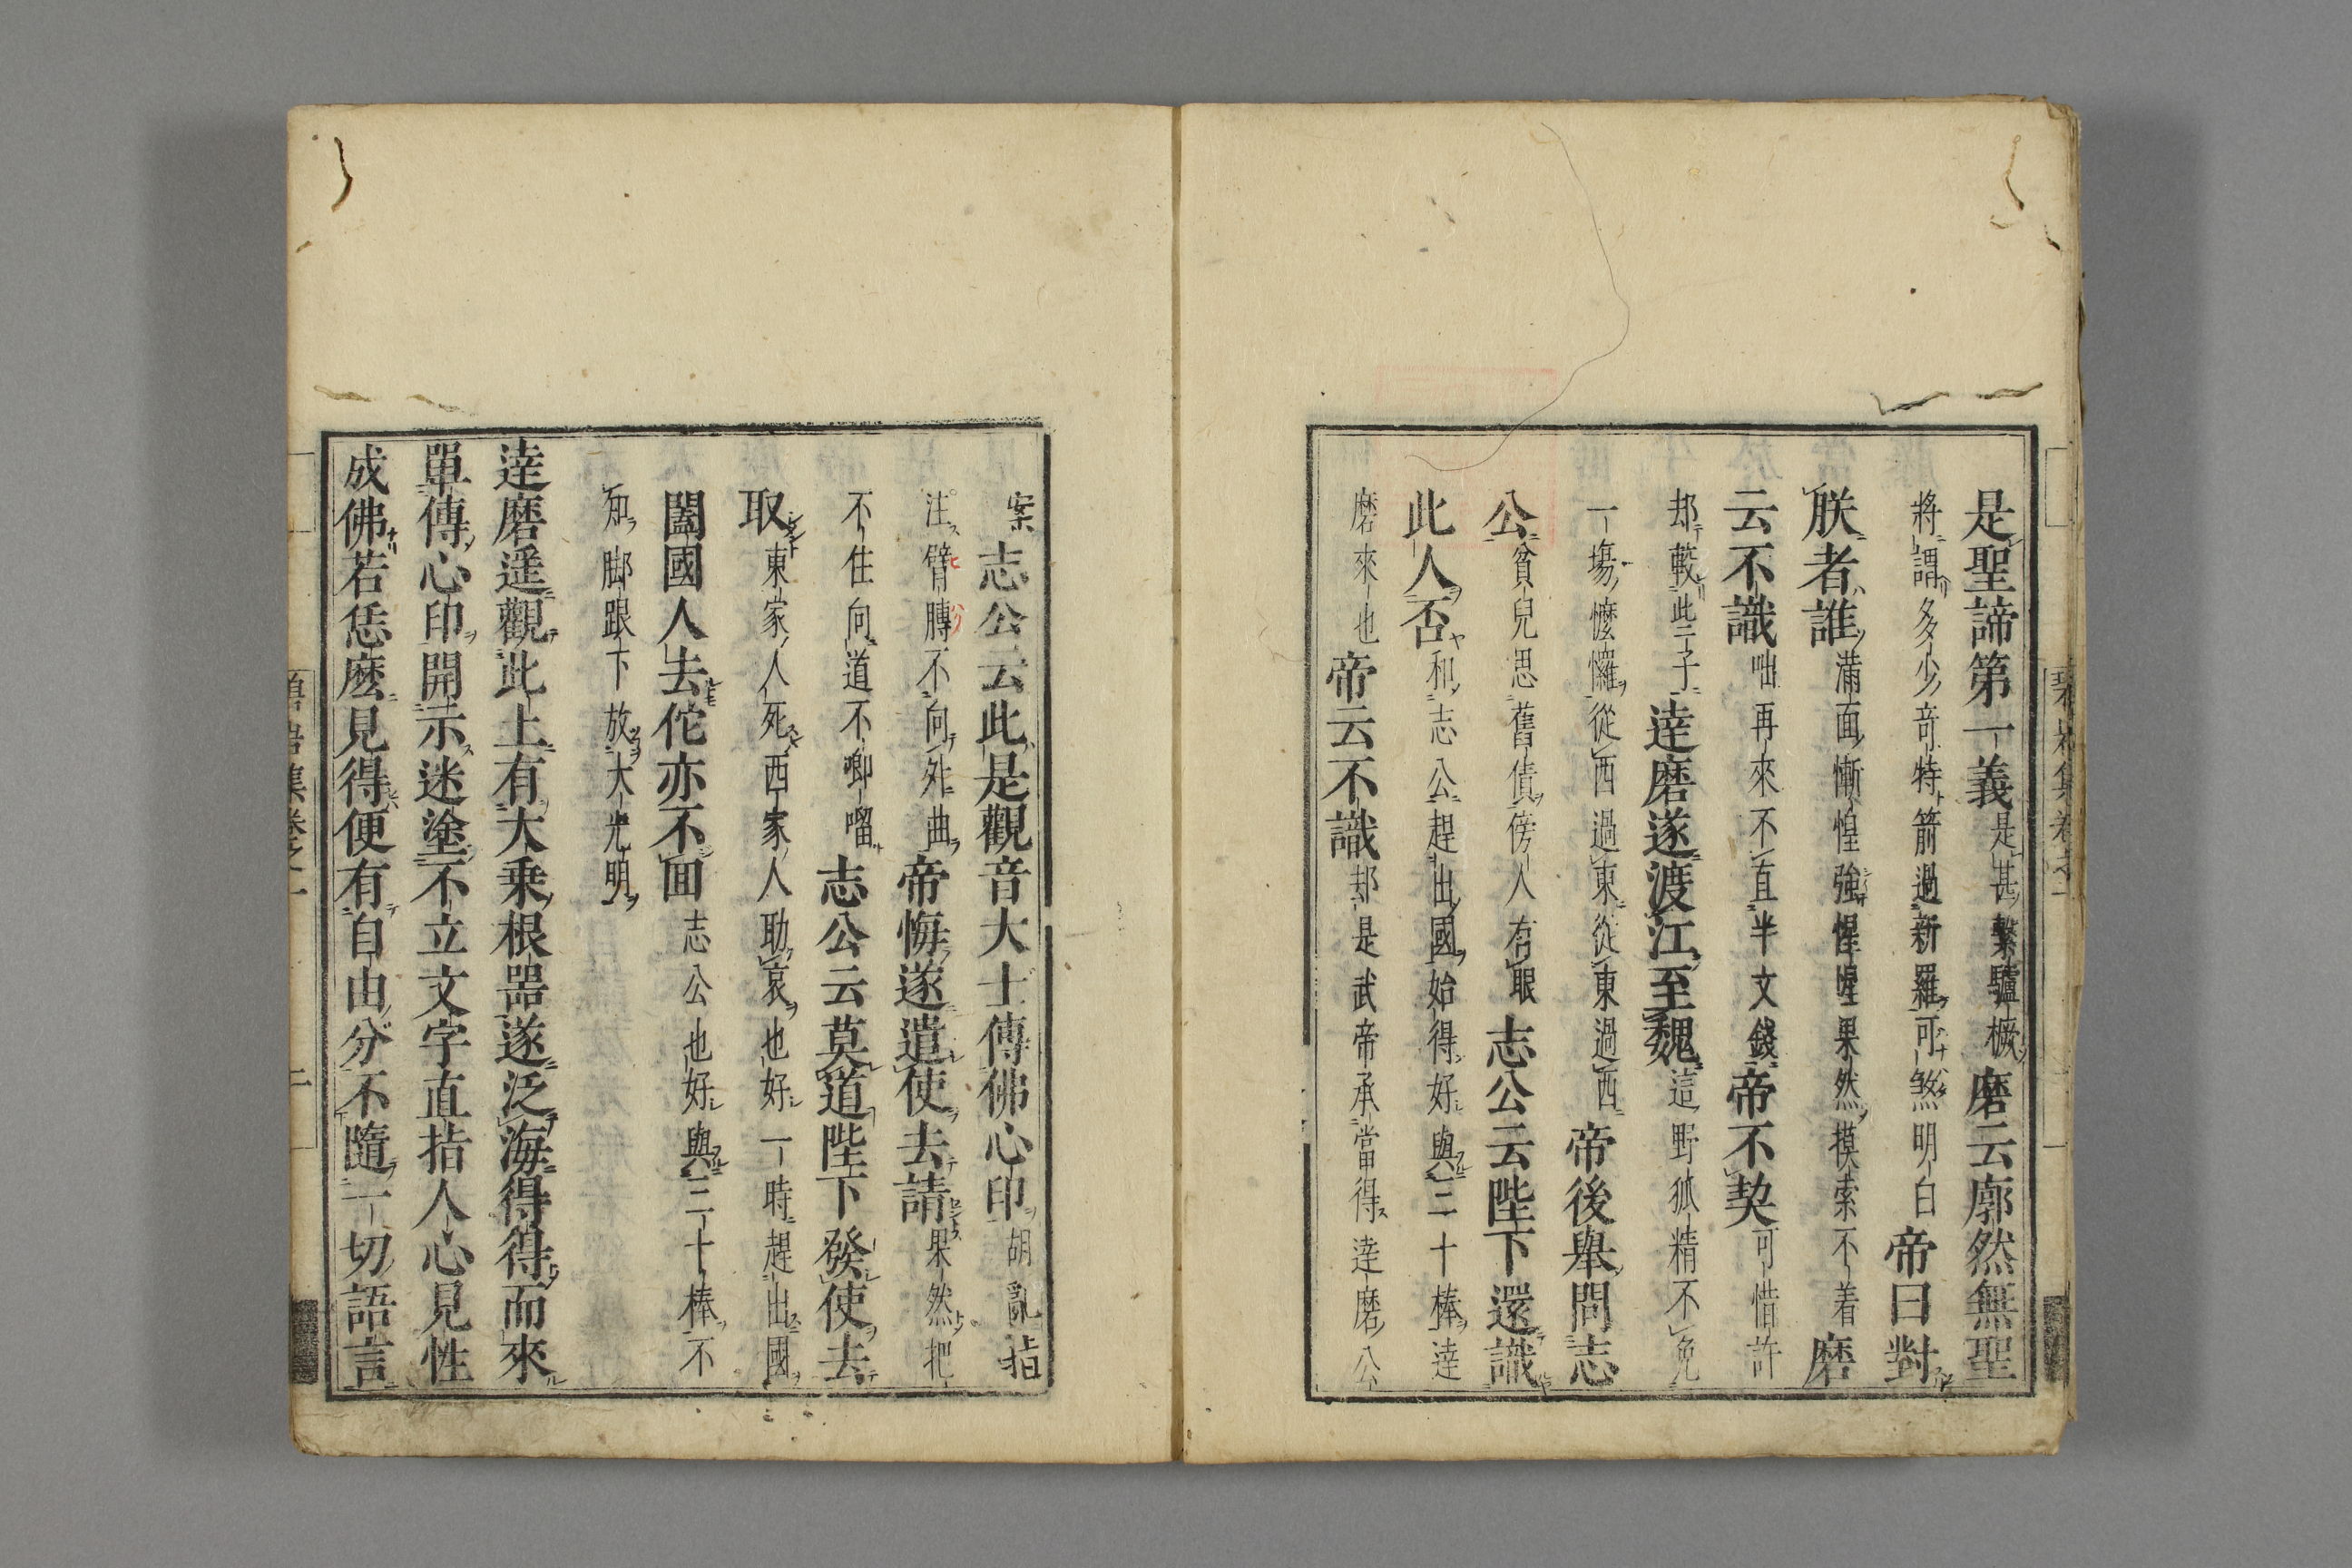 是聖諦第一義是甚繫驢橛磨云廓然無聖
將謂多少奇特箭過新羅可煞明白帝曰對
朕者誰滿面慚惶強惺惺果然摸索不着磨
云不識咄再來不直半文錢帝不契可惜許
却較此子達磨遂渡江至魏這野狐精不免
一場懡㦬從西過東從東過西帝後舉問志
公貧兒思舊債傍人有眼志公云陛下還識
此人否和志公趕出國始得好與三十棒達
磨來也帝云不識却是武帝承當得達磨公
案志公云此是觀音大士傳佛心印胡亂指
注臂膊不向外曲帝悔遂遣使去請果然把
不住向道不唧𠺕志公云莫道陛下發使去
取東家人死西家人助哀也好一時趕出國
闔國人去佗亦不回志公也好與三十棒不
知脚跟下放大光明
達磨遥觀此土有大乘根器遂泛海得得而來
單傳心印開示迷塗不立文字直指人心見性
成佛若恁麽見得便有自由分不隨一切語言